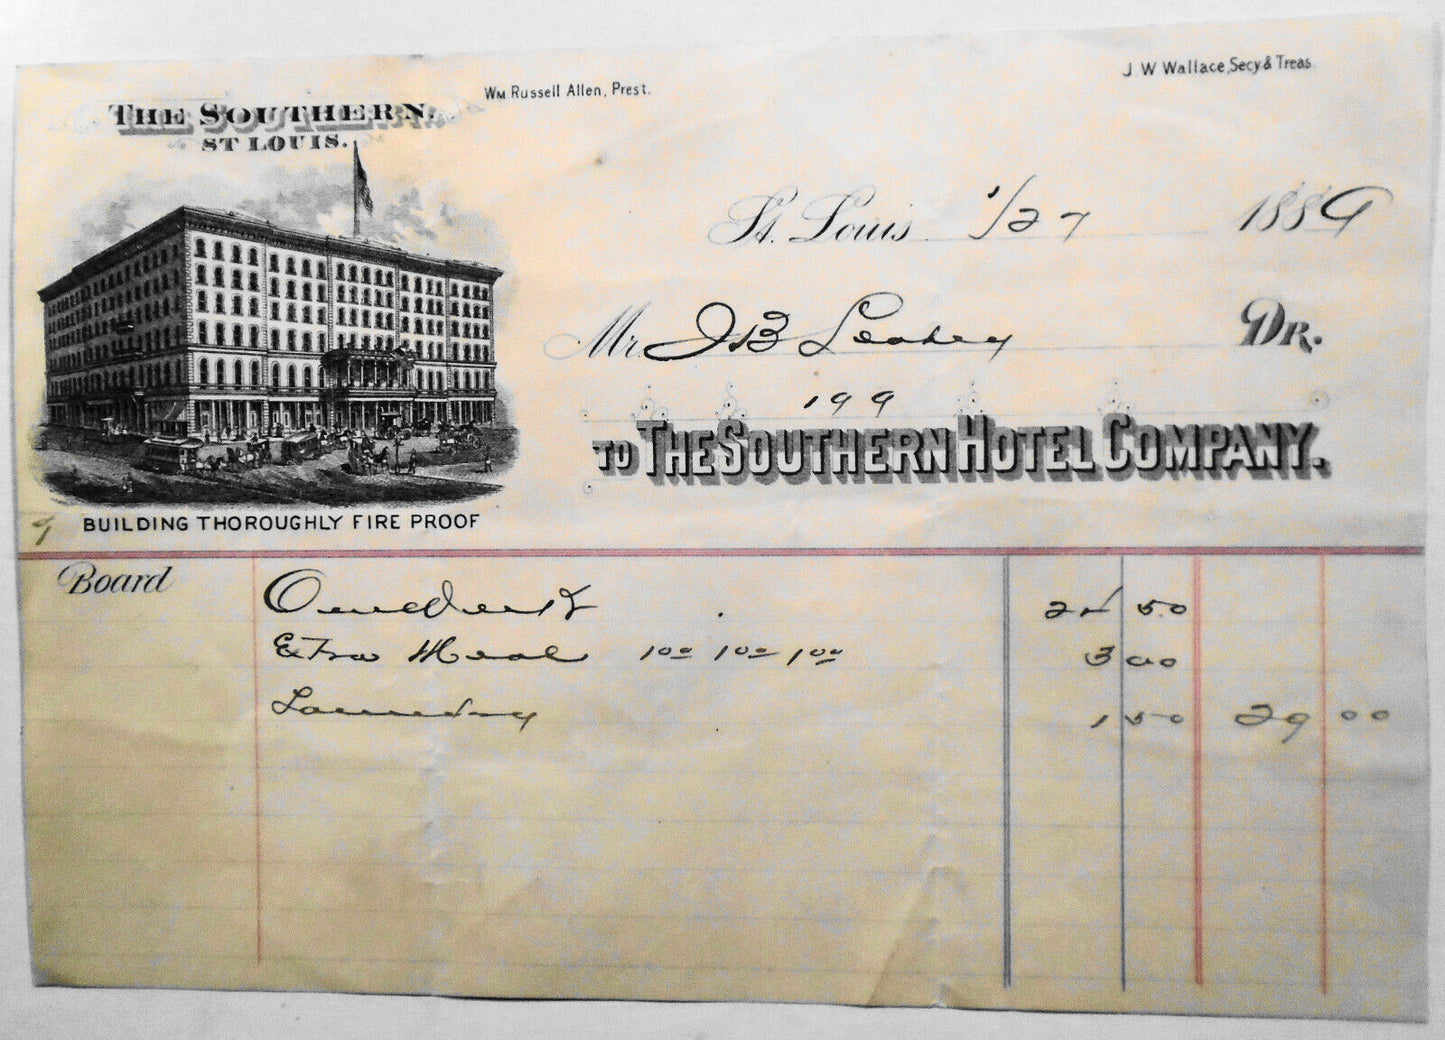 Wm Russell Allen, Prest.
J W Wallace, Secy & Treas
THE SOUTHERN.
ST LOUIS.
St. Louis 1/27 1889
Mr. J B Leahey DR.
199
TO THE SOUTHERN HOTEL COMPANY.
BUILDING THOROUGHLY FIRE PROOF
9
Board One Week 24 50
Extra Meals 1 00 1 00 1 00 3 00
Laundry 1 50 29 00